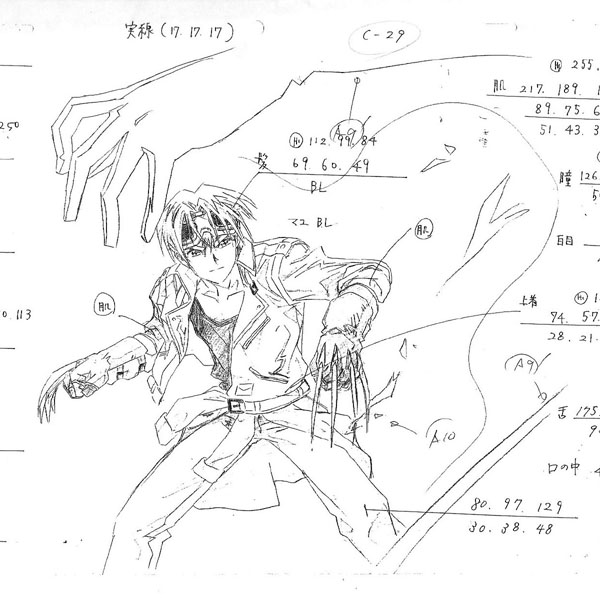 実線(17.17.17)
C-29
Hi 255.
肌 217. 189. 1
89. 75. 6
51. 43. 3
250
A9
Hi 112. 99. 84
髪 69. 60. 49
BL
マユ BL
肌
瞳 126
5
白目
肌
0. 113
上着
Hi 1
74. 57.
28. 21.
A9
舌 175
9
A10
口の中 4
80. 97. 129
30. 38. 48